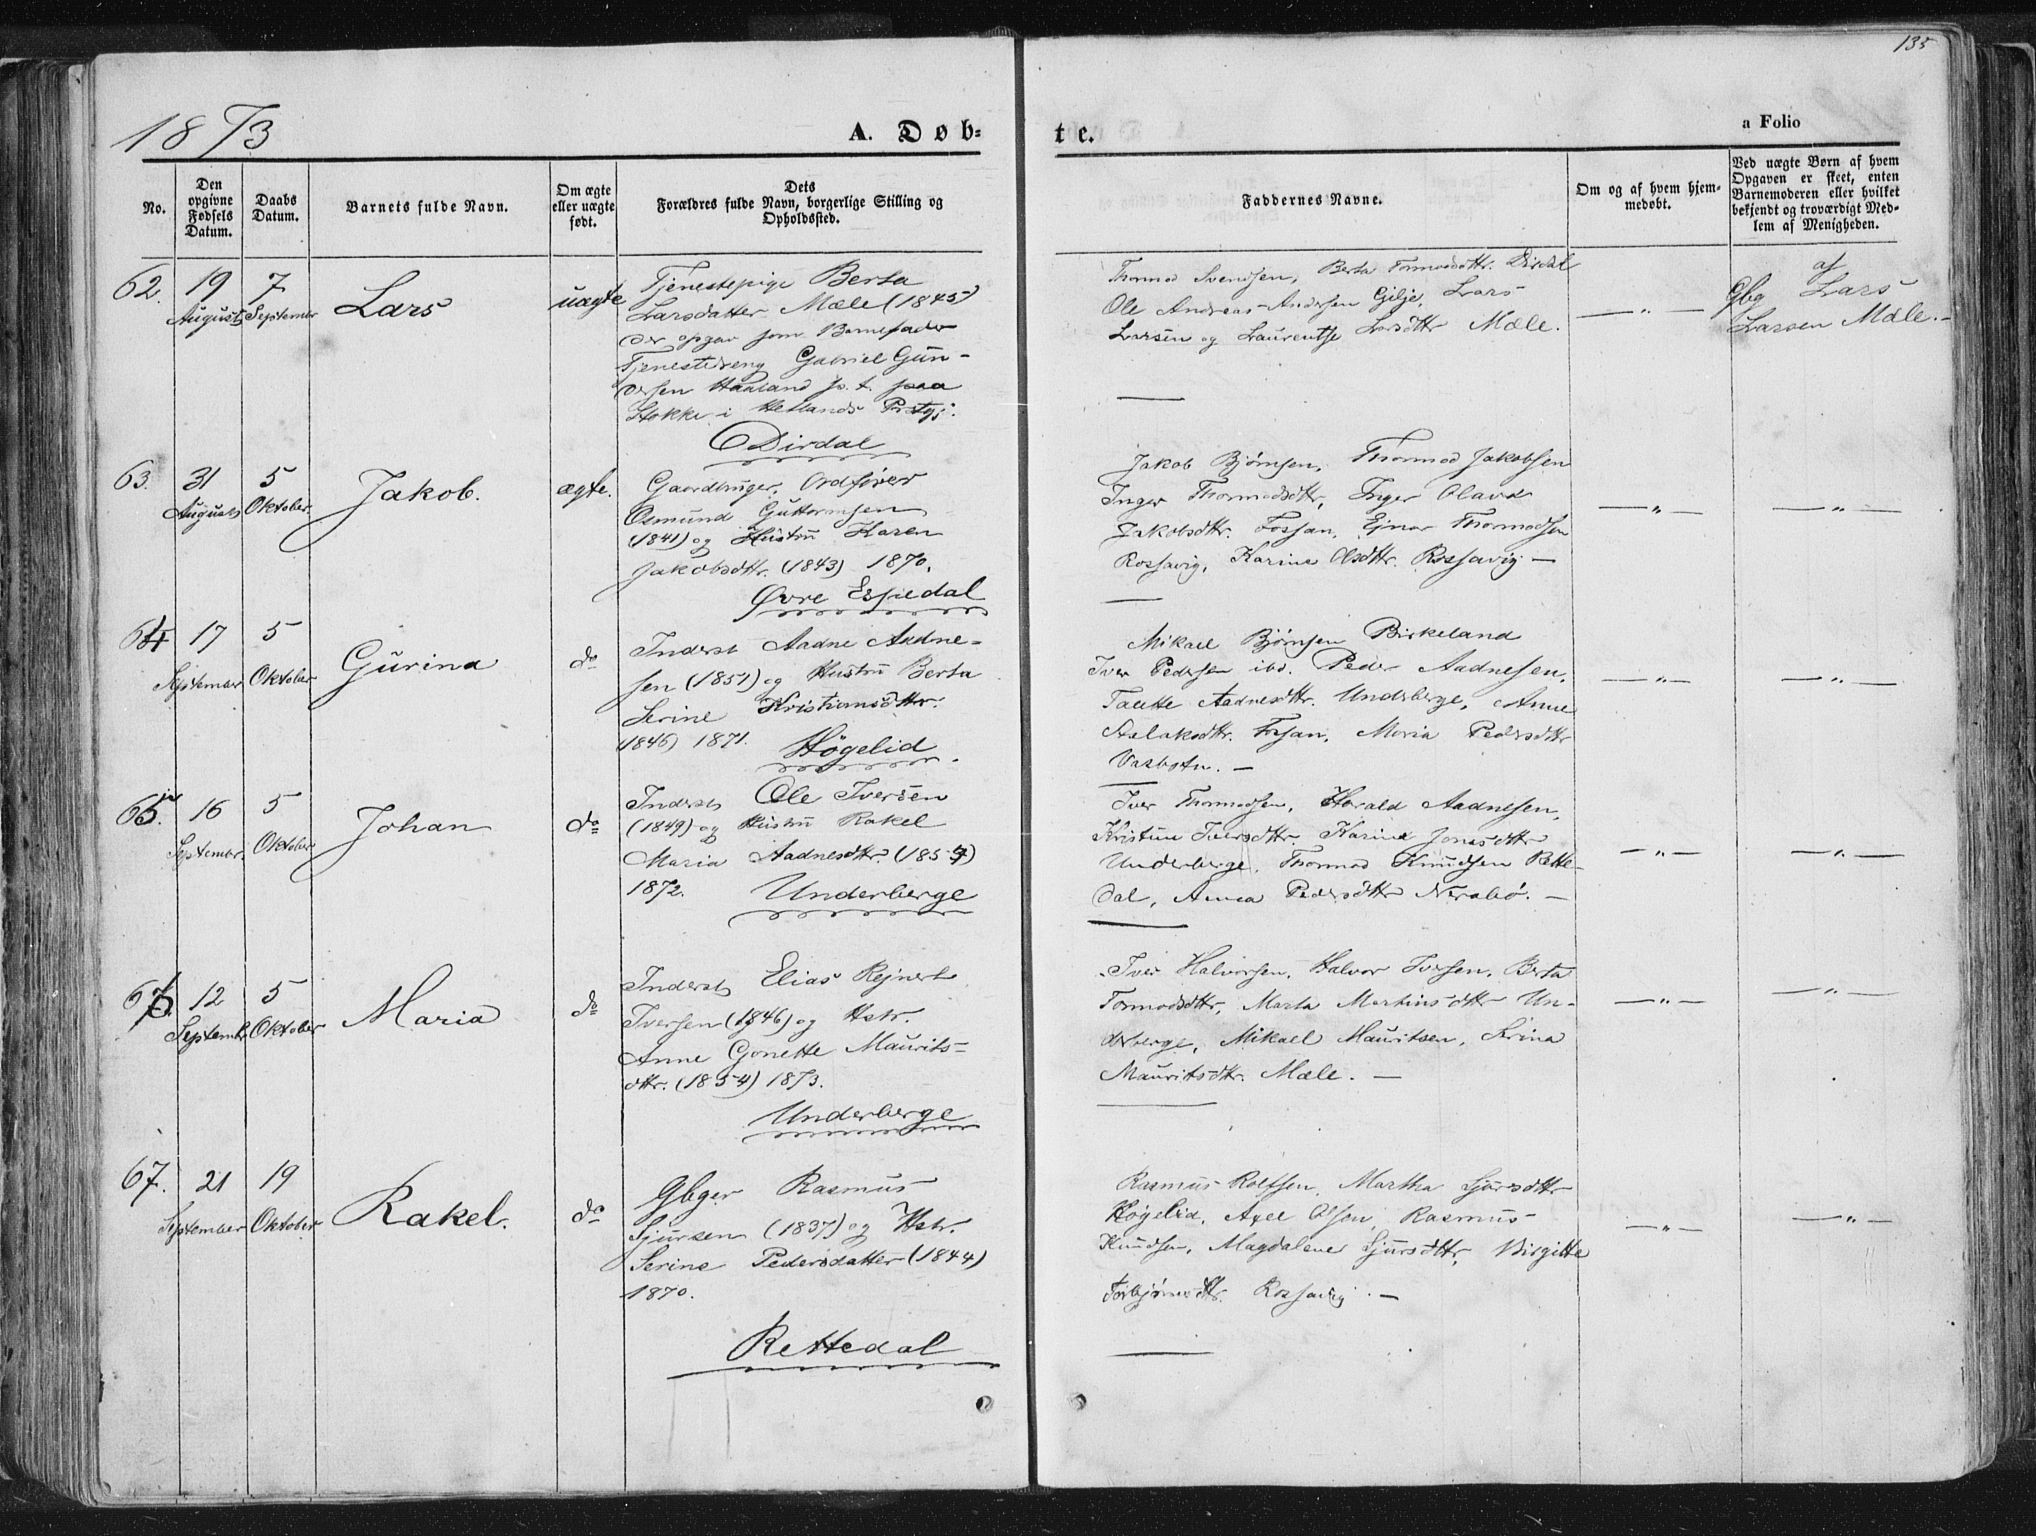 135
1873
A. Døb=
te.
a Folio
No.
Den opgivne Fødsels Datum.
Daabs Datum.
Barnets fulde Navn.
Om ægte eller uægte født.
Dets Forældres fulde Navn, borgerlige Stilling og Opholdssted.
Faddernes Navne.
Om og af hvem hjemmedøbt.
Ved uægte Børn af hvem Opgaven er skeet, enten Barnemoderen eller hvilket bekjendt og troværdigt Medlem af Menigheden.
62. 19 August 7 September Lars uægte
Tjenestepige Berta
Larsdatter Mæle (1845)
der opgav som Barnefader
Tjenestedreng Gabriel Gun-
dersen Haaland p. t. paa
Stokke i Hetlands Prstgj.
Dirdal
Thormod Svendsen, Berta Tormodsdttr. Dirdal
Ole Andreas Andersen Gilje, Lars
Larsen og Laurentse Larsdttr Mæle.
— " —
af
Gbg Lars
Larsen Mæle.-
63. 31 August 5 Oktober Jakob. ægte.
Gaardbruger, Ordfører
Osmund Guttormsen
(1841) og Hustru Karen
Jakobsdttr. (1843) 1870.
Øvre Espedal
Jakob Bjørnsen, Thormod Jakobsen
Inger Thormodsdttr, Inger Olava
Jakobsdttr. Fossan, Ejnar Thormodsen
Rossavig, Karine Olsdttr. Rossavig —
— " —
— " —
64 17 September 5 Oktober Gurina do
Inderst Aadne Aadne-
sen (1851) og Hustru Berta
Serine Kristiansdttr.
(1846) 1871.
Høgelid
Mikael Bjørnsen Birkeland
Iver Pedersen ibd. Peder Aadnesen,
Taletta Aadnesdttr. Underberge, Anne
Aslaksdttr. Fossan, Maria Pedersdttr
Vasbotn. —
— " —
— " —
65. 16 Septembr. 5 Oktober Johan do
Inderst Ole Iversen
(1849) og Hustru Rakel
Maria Aadnesdttr. (1854)
1872.
Underberge
Iver Thormodsen, Harald Aadnesen,
Kristine Iversdttr. Karine Jonasdttr
Underberge, Thormod Knudsen Rette-
dal, Anna Pedersdttr Nerabø. —
— " —
— " —
66. 12 Septembr 5 Oktober Maria do
Inderst Elias Rejnert
Iversen (1846) og Hstr.
Anne Gonette Maurits-
dttr. (1854) 1873.
Underberge
Iver Halvorsen, Halvor Iversen, Berta
Tormodsdttr, Marta Martinsdttr Un-
derberge, Mikael Mauritsen, Serina
Mauritsdttr. Mæle. —
— " —
— " —
67. 21 September 19 Oktober Rakel. do
Gbger Rasmus
Sjursen (1837) og Hstr.
Serine Pedersdatter (1844)
1870.
Rettedal
Rasmus Rolfsen, Martha Sjursdttr
Høgelid, Axel Olsen, Rasmus
Knudsen, Magdalene Sjursdttr, Birgitte
Torbjørnsdttr. Rossavig. —
— " —
— " —